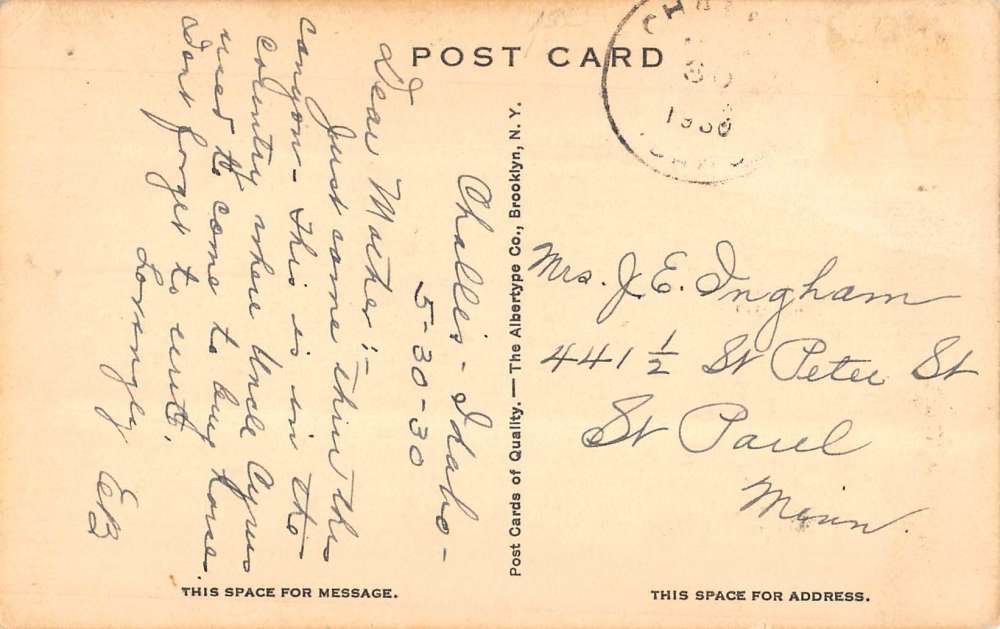 POST CARD
Challis - Idaho -
5-30-30
Dear Mother:-
Just came thru this
canyon - This is in the
country where Uncle Cyrus
used to come to buy horses.
Dont forget to write.
Lovingly
EB
Post Cards of Quality. — The Albertype Co., Brooklyn, N. Y.
30
1930
Mrs. J. E. Ingham
441 ½ St Peter St
St Paul
Minn.
THIS SPACE FOR MESSAGE.
THIS SPACE FOR ADDRESS.